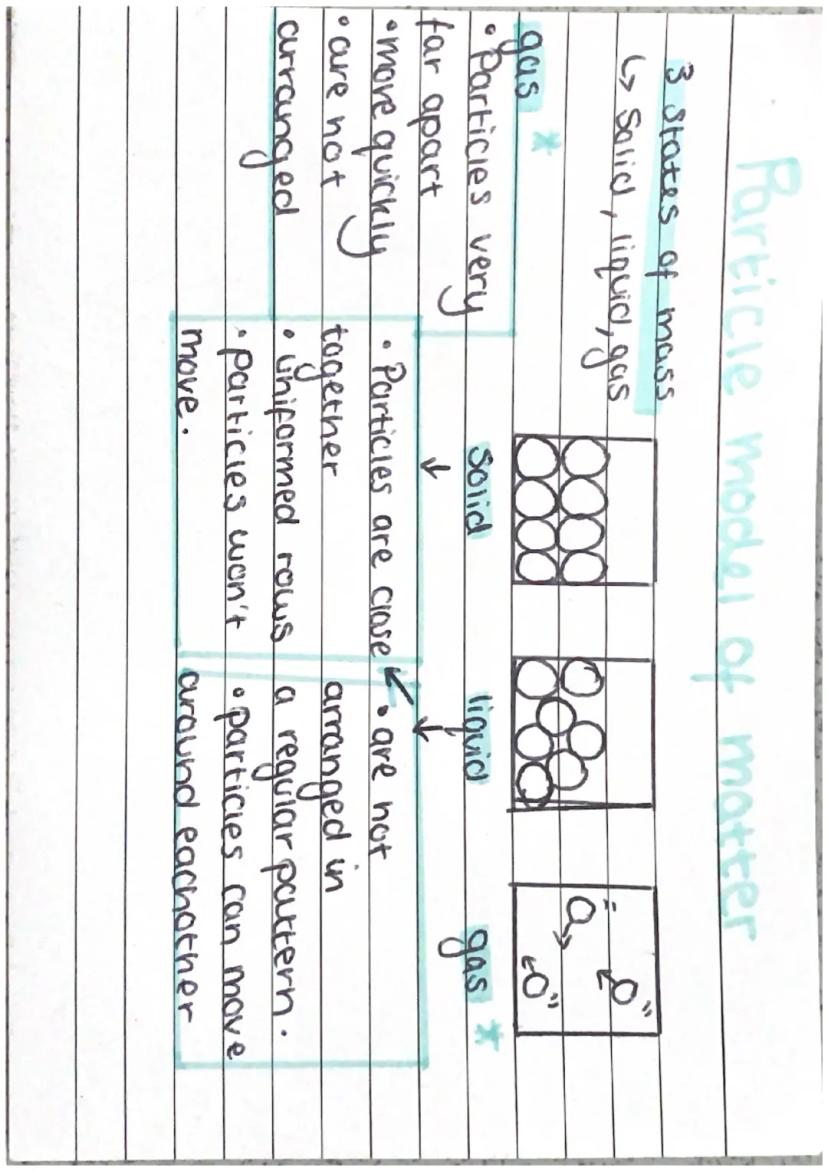 Particle model of matter
3 states of mass
↳ Solid, liquid, gas
solid
liquid
gas *
gas *
• Particles very
far apart
• more quickly
• are not
arranged
• Particles are close
together
• Uniformed rows
• particles won't
move.
• are not
arranged in
a regular pattern.
• particles can move
around eachother